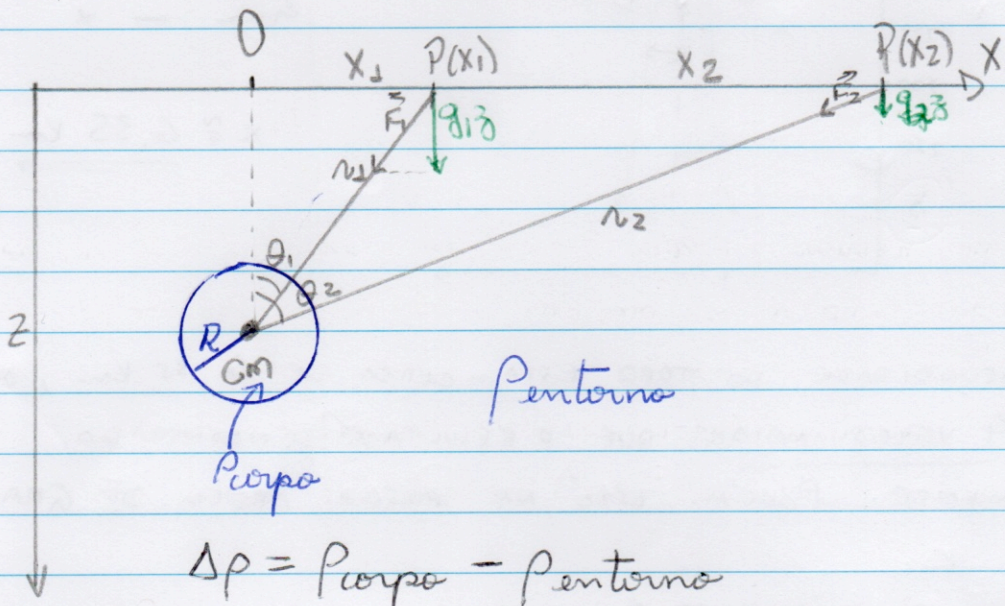 0
X1 P(X1) X2 P(X2) X
F1 g1z F2 g2z
r1
r2
θ1
θ2
Z
R
CM
ρentorno
ρcorpo
Δρ = ρcorpo - ρentorno